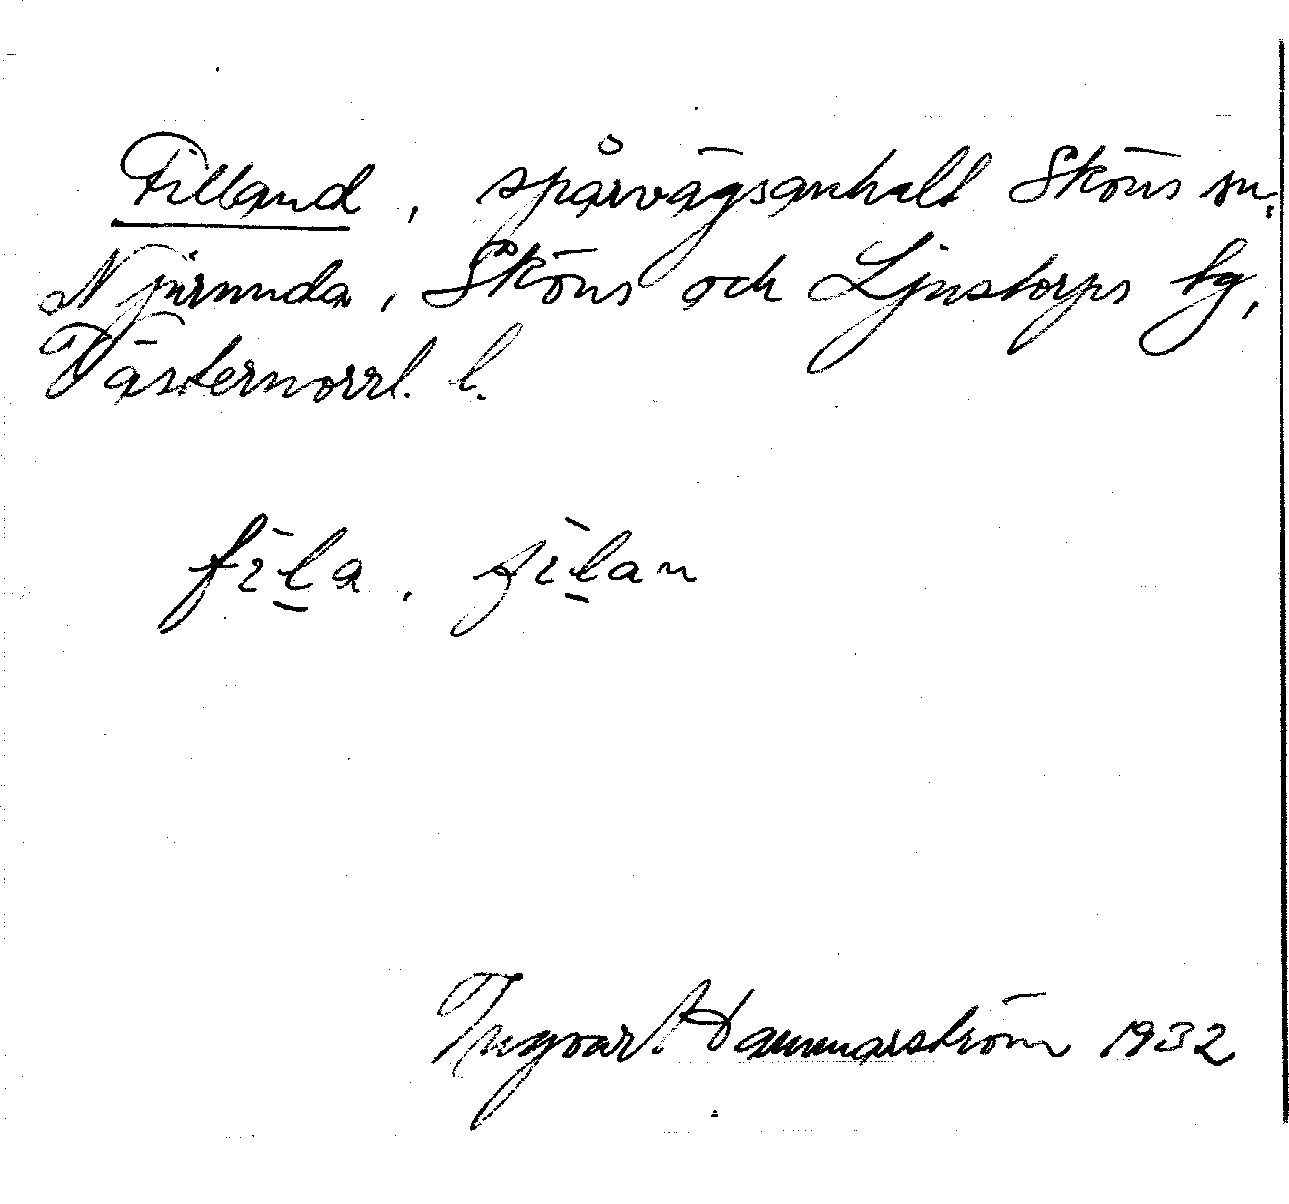 Filland, spårvägsanhalt Sköns sn,
Njurunda, Sköns och Ljustorps tg,
Västernorrl. l.
fila. filan
Ingvar Hammarström 1932